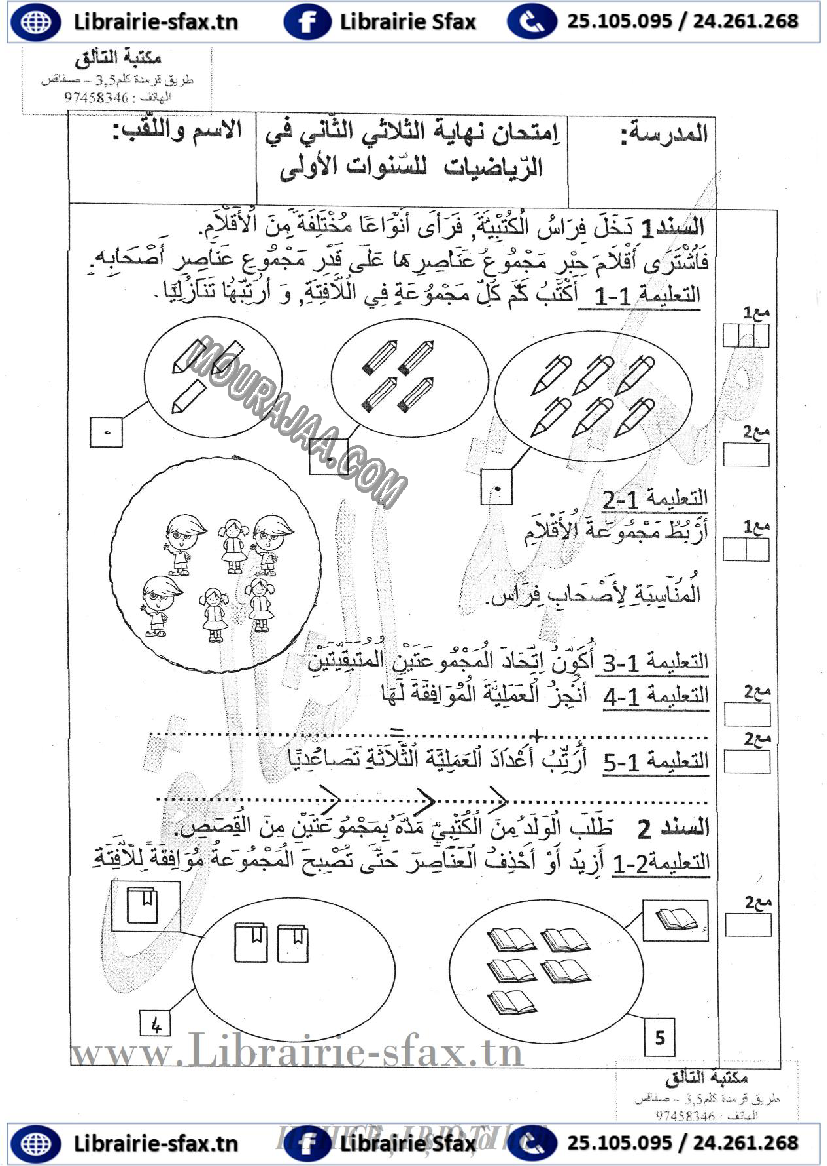 Librairie-sfax.tn Librairie Sfax 25.105.095 / 24.261.268
مكتبة التالق
طريق قرمدة كلم3,5 – صفاقس
الهاتف : 97458346
المدرسة:
إمتحان نهاية الثلاثي الثّاني في
الرّياضيات للسّنوات الأولى
الاسم واللّقب:
السند1 دَخَلَ فِرَاسُ الْكُتْبِيَّةَ, فَرَأَى أَنْوَاعًا مُخْتَلِفَةً مِنَ الْأَقْلَامِ.
فَاُشْتَرَى أَقْلَامَ حِبْرٍ مَجْمُوعُ عَنَاصِرِهَا عَلَى قَدْرِ مَجْمُوعِ عَنَاصِرِ أَصْحَابِهِ.
التعليمة 1-1 أَكْتُبُ كَمَّ كُلِّ مَجْمُوعَةٍ فِي اللَّافِتَةِ, وَ أُرَتِّبُهَا تَنَازُلِيًّا.
مع1
مع2
MOURAJAA.COM
التعليمة 1-2
أَرْبُطُ مَجْمُوعَةَ الْأَقْلَامِ
مع1
الْمُنَاسِبَةِ لِأَصْحَابِ فِرَاس.
التعليمة 1-3 أُكَوِّنُ اِتِّحَادَ الْمَجْمُوعَتَيْنِ الْمُتَبَقِّيَتَيْنِ
التعليمة 1-4 أُنْجِزُ الْعَمَلِيَّةَ الْمُوَافِقَةَ لَهَا
مع2
...............+...............=...............
مع2
التعليمة 1-5 أُرَتِّبُ أَعْدَادَ الْعَمَلِيَّةِ الثَّلَاثَةِ تَصَاعُدِيًّا
...............>...............>...............>...............
السند 2 طَلَبَ الْوَلَدُ مِنَ الْكُتْبِيِّ مَدَّهُ بِمَجْمُوعَتَيْنِ مِنَ الْقِصَصِ.
التعليمة2-1 أَزِيدُ أَوْ أَحْذِفُ الْعَنَاصِرَ حَتَّى تُصْبِحَ الْمَجْمُوعَةُ مُوَافِقَةً لِلَّافِتَةِ
مع2
4
5
www.Librairie-sfax.tn
مكتبة التالق
طريق قرمدة كلم3,5 – صفاقس
الهاتف : 97458346
Librairie-sfax.tn Librairie Sfax 25.105.095 / 24.261.268